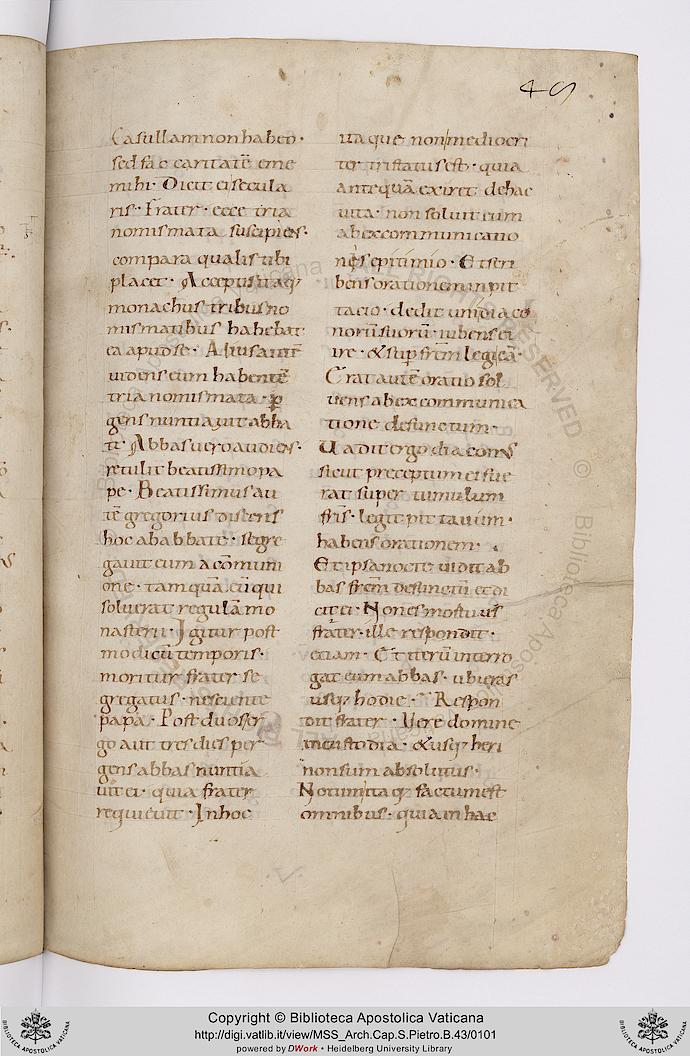 49
Casullam non habeo·
sed fac caritatē eme
mihi· Dicit ei secula
ris· Frater· ecce tria
nomismata suscipies·
compara qualis tibi
placet· Acceptis itaq;
monachus tribus no
mismatibus habebat
ea apud se· Alius autē
uidens eum habentē
tria nomismata· p
gens nuntiauit abba
ti· Abbas uero audiens·
retulit beatissimo pa
pe· Beatissimus au
tē gregorius discens
hoc ab abbate· segre
gauit eum a cōmuni
one· tam quā eū qui
soluerat regulā mo
nasterii· Igitur post
modicū temporis·
moritur frater se
gregatus· nesciente
papa· Post duos er
go aut tres dies per
gens abbas nuntia
uit ei· quia frater
requieuit· In hoc
itaque non mediocri
ter tristatus est· quia
antequā exiret de hac
uita· non soluit eum
ab excommunicatio
nis epitimio· Et scri
bens orationem in pit
tacio· dedit uni diaco
norū suorū· iubens ei
ire· & sup frēm legi eā·
Erat autē oratio sol
uens ab excommunica
tione defunctum·
Uadit ergo diacons
sicut preceptum ei fue
rat super tumulum
fris· legit pittacium·
habens orationem·
Et ipsa nocte uidit ab
bas frēm defunctū et di
cit ei· Non es mortuus
frater· ille respondit·
etiam· Et iterū interro
gat eum abbas· ubi eras
usq; hodie· Respon
dit frater· Uere domine
in custodia· & usq; heri
non sum absolutus·
Notum itaq; factum est
omnibus· quia in hac
Copyright © Biblioteca Apostolica Vaticana
http://digi.vatlib.it/view/MSS_Arch.Cap.S.Pietro.B.43/0101
powered by DWork • Heidelberg University Library